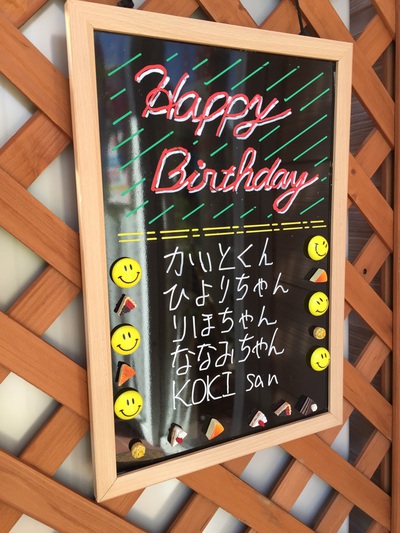 Happy
Birthday
かいとくん
ひよりちゃん
りほちゃん
ななみちゃん
KOKI san